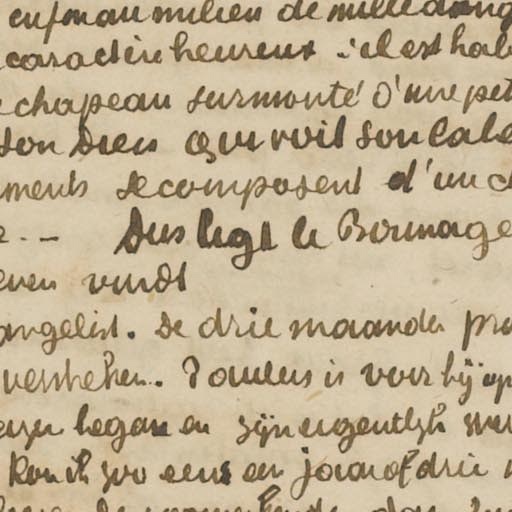 enfin au milieu de mille dang
caractère heureux : il est hab
chapeau surmonté d'une pet
son Dieu qui voit son cale
ments se composent d'un c
e -- Dus legt le Borinage
even vindt
angelist. De drie maanden pr
verstreken. Paulus is voor hij op
begon en zijn eigentlijk wer
Kon ik zoo eens en jaar of drie